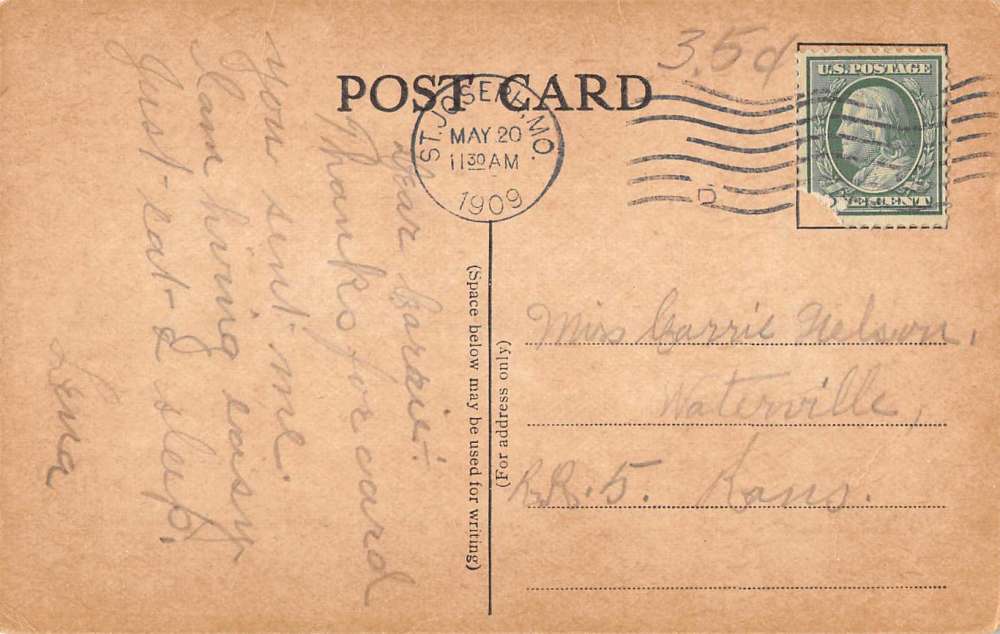 POST CARD
ST. JOSEPH, MO.
MAY 20
11 30 AM
1909
D
3.5¢
U.S. POSTAGE
ONE CENT
Dear Carrie:
Thanks for card
you sent me.
I am having easy
Just eat & sleep.
Lena
(Space below may be used for writing)
(For address only)
Miss Carrie Nelson,
Waterville,
R.R. 5. Kans.